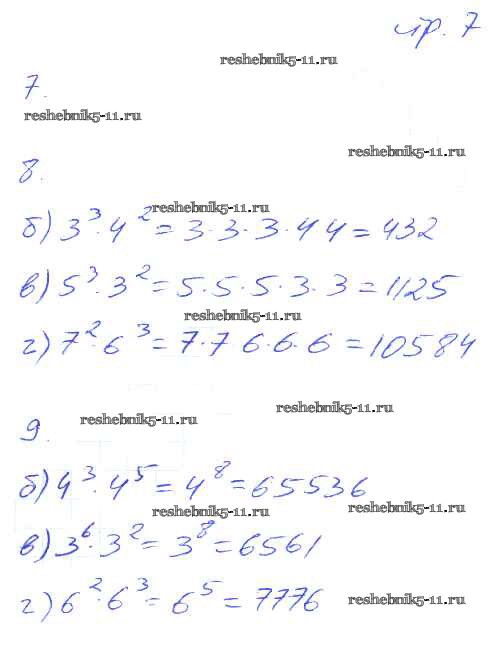 стр. 7
reshebnik5-11.ru
7.
reshebnik5-11.ru
reshebnik5-11.ru
8.
reshebnik5-11.ru
б) 3³·4² = 3·3·3·4 4 = 432
в) 5³·3² = 5·5·5·3·3 = 1125
reshebnik5-11.ru
г) 7²·6³ = 7·7 6·6·6 = 10584
reshebnik5-11.ru
reshebnik5-11.ru
9.
б) 4³·4⁵ = 4⁸ = 65536
reshebnik5-11.ru
reshebnik5-11.ru
в) 3⁶·3² = 3⁸ = 6561
г) 6²·6³ = 6⁵ = 7776
reshebnik5-11.ru